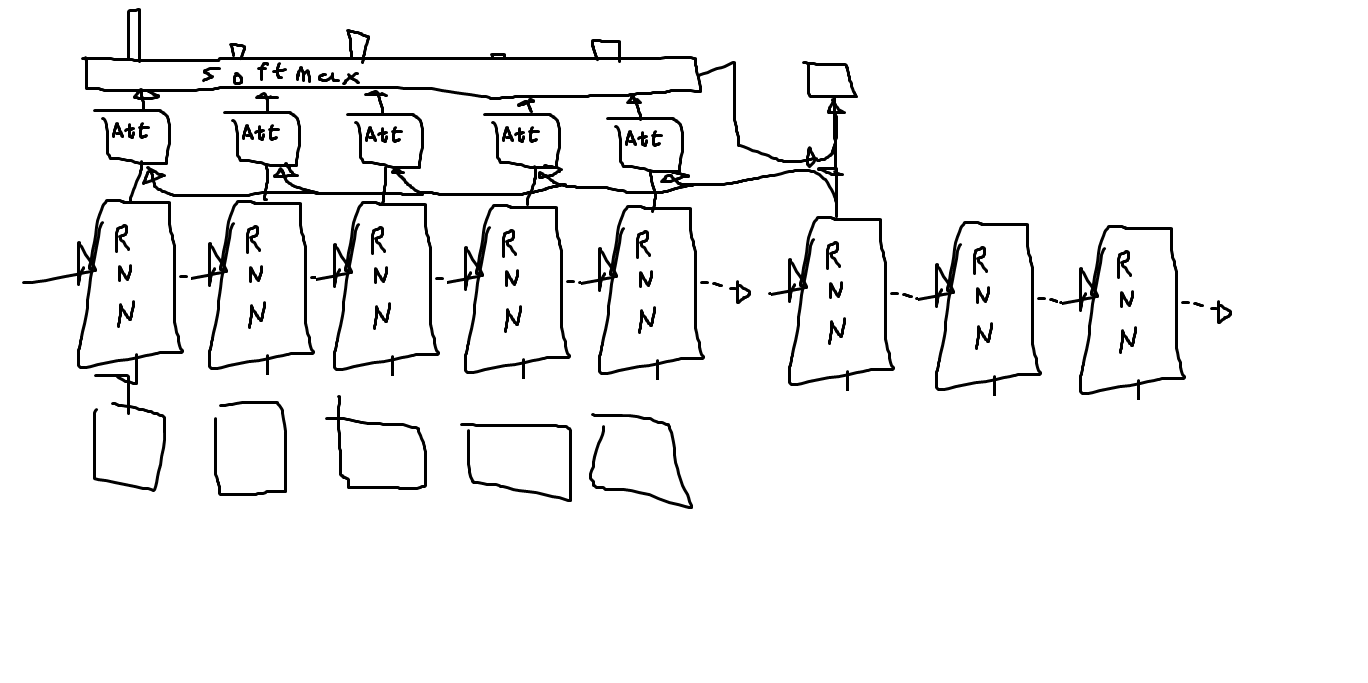 softmax
Att Att Att Att Att
RNN RNN RNN RNN RNN RNN RNN RNN